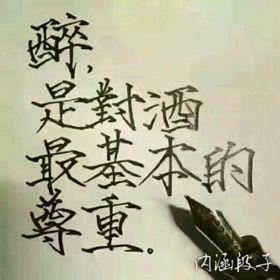 醉,
是對酒
最基本的
尊重.
内涵段子